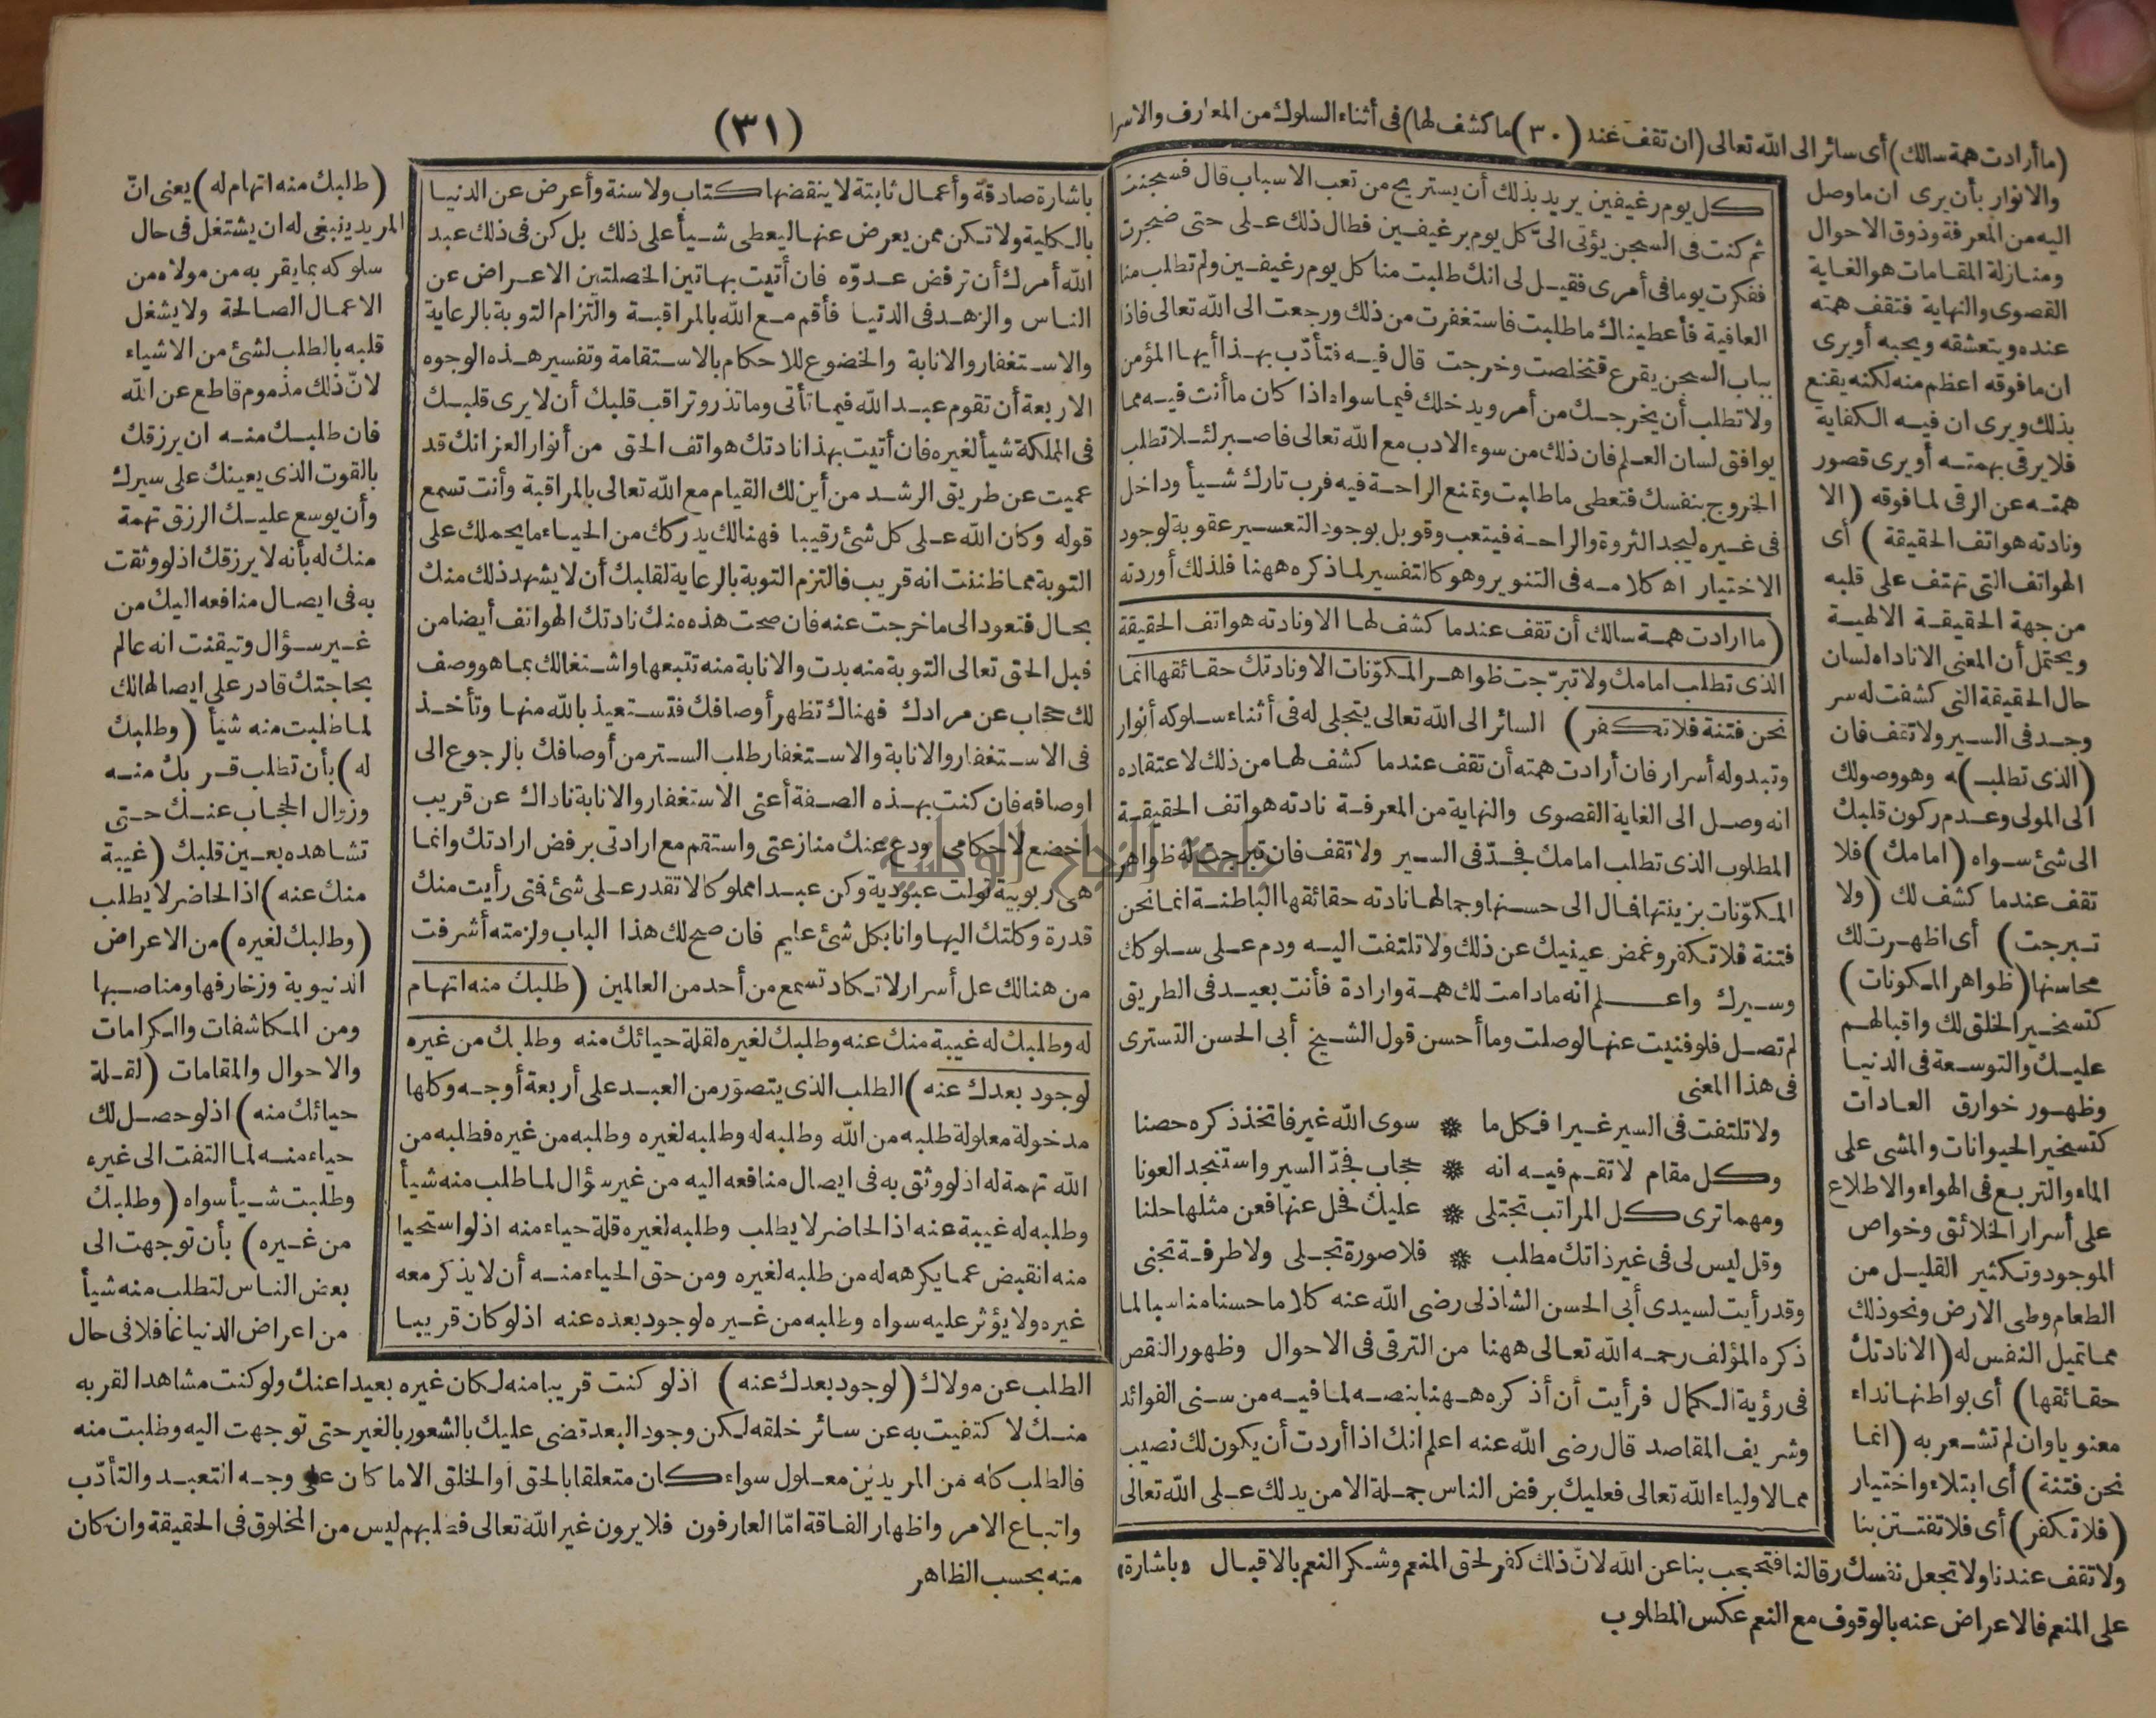 (ما أرادت همة سالك) أى سائر الى الله تعالى (ان تقف عند (٣٠) ما كشف لها) فى أثناء السلوك من المعارف والاسرار
والانوار بأن يرى ان ما وصل
اليه من المعرفة وذوق الاحوال
ومنازلة المقامات هو الغاية
القصوى والنهاية فتقف همته
عنده ويتعشقه ويحبه أو يرى
ان ما فوقه اعظم منه لكنه يقنع
بذلك ويرى ان فيه الكفاية
فلا يرقى بهمته أو يرى قصور
همته عن الرقى لما فوقه (الا
ونادته هواتف الحقيقة) أى
الهواتف التى تهتف على قلبه
من جهة الحقيقة الالهية
ويحتمل أن المعنى الا ناداه لسان
حال الحقيقة التى كشفت له سر
وجد فى السير ولا تقف فان
(الذى تطلب)ه وهو وصولك
الى المولى وعدم ركون قلبك
الى شئ سواه (امامك) فلا
تقف عندما كشف لك (ولا
تبرجت) أى اظهرت لك
محاسنها (ظواهر المكونات)
كتسخير الخلق لك واقبالهم
عليك والتوسعة فى الدنيا
وظهور خوارق العادات
كتسخير الحيوانات والمشى على
الماء والتربع فى الهواء والاطلاع
على أسرار الخلائق وخواص
الموجود وتكثير القليل من
الطعام وطى الارض ونحو ذلك
مما تميل النفس له (الا نادتك
حقائقها) أى بواطنها نداء
معنويا وان لم تشعر به (انما
نحن فتنة) أى ابتلاء واختبار
(فلا تكفر) أى فلا تفتتن بنا
ولا تقف عندنا ولا تجعل نفسك رقا لنا فتحجب بنا عن الله لانّ ذلك كفر لحق المنعم وشكر النعم بالاقبال
على المنعم فالاعراض عنه بالوقوف مع النعم عكس المطلوب
كل يوم رغيفين يريد بذلك أن يستريح من تعب الاسباب قال فسجنت
ثم كنت فى السجن يؤتى الىّ كل يوم برغيفين فطال ذلك على حتى ضجرت
ففكرت يوما فى أمرى فقيل لى انك طلبت منا كل يوم رغيفين ولم تطلب منا
العافية فأعطيناك ما طلبت فاستغفرت من ذلك ورجعت الى الله تعالى فاذا
بباب السجن يقرع فتخلصت وخرجت قال فيه فتأدّب بهذا أيها المؤمن
ولا تطلب أن يخرجك من أمر ويدخلك فيما سواه اذا كان ما أنت فيه مما
يوافق لسان العلم فان ذلك من سوء الادب مع الله تعالى فاصبر لئلا تطلب
الخروج بنفسك فتعطى ما طلبت وتمنع الراحة فيه فرب تارك شيأ وداخل
فى غيره ليجد الثروة والراحة فيتعب وقوبل بوجود التعسير عقوبة لوجود
الاختيار اه كلامه فى التنوير وهو كالتفسير لما ذكره ههنا فلذلك أوردته
(ما ارادت همة سالك أن تقف عندما كشف لها الا ونادته هواتف الحقيقة
الذى تطلب امامك ولا تبرّجت ظواهر المكوّنات الا ونادتك حقائقها انما
نحن فتنة فلا تكفر) السائر الى الله تعالى يتجلى له فى أثناء سلوكه أنوار
وتبدو له أسرار فان أرادت همته أن تقف عندما كشف لها من ذلك لاعتقاده
انه وصل الى الغاية القصوى والنهاية من المعرفة نادته هواتف الحقيقة
المطلوب الذى تطلب امامك فجدّ فى السير ولا تقف فان تبرجت له ظواهر
المكوّنات بزينتها فمال الى حسنها وجمالها نادته حقائقها الباطنة انما نحن
فتنة فلا تكفر وغمض عينيك عن ذلك ولا تلتفت اليه ودم على سلوكك
وسيرك واعلم انه ما دامت لك همة وارادة فأنت بعيد فى الطريق
لم تصل فلو فنيت عنها لوصلت وما أحسن قول الشيخ أبى الحسن التسترى
فى هذا المعنى
ولا تلتفت فى السير غيرا فكل ما * سوى الله غير فاتخذ ذكره حصنا
وكل مقام لا تقم فيه انه * حجاب فجدّ السير واستنجد العونا
ومهما ترى كل المراتب تجتلى * عليك فحل عنها فعن مثلها حلنا
وقل ليس لى فى غير ذاتك مطلب * فلا صورة تجلى ولا طرفة تجنى
وقد رأيت لسيدى أبى الحسن الشاذلى رضى الله عنه كلاما حسنا مناسبا لما
ذكره المؤلف رحمه الله تعالى ههنا من الترقى فى الاحوال وظهور النقص
فى رؤية الكمال فرأيت أن أذكره ههنا بنصه لما فيه من سنى الفوائد
وشريف المقاصد قال رضى الله عنه اعلم انك اذا أردت أن يكون لك نصيب
مما لاولياء الله تعالى فعليك برفض الناس جملة الا من يدلك على الله تعالى
(باشارة)
(٣١)
باشارة صادقة وأعمال ثابتة لا ينقضها كتاب ولا سنة وأعرض عن الدنيا
بالكلية ولا تكن ممن يعرض عنها ليعطى شيأ على ذلك بل كن فى ذلك عبد
الله أمرك أن ترفض عدوّه فان أتيت بهاتين الخصلتين الاعراض عن
الناس والزهد فى الدنيا فأقم مع الله بالمراقبة والتزام التوبة بالرعاية
والاستغفار والانابة والخضوع للاحكام بالاستقامة وتفسير هذه الوجوه
الاربعة أن تقوم عبد الله فيما تأتى وما تذر وتراقب قلبك أن لا يرى قلبك
فى المملكة شيأ لغيره فان أتيت بهذا نادتك هواتف الحق من أنوار العز انك قد
عميت عن طريق الرشد من أين لك القيام مع الله تعالى بالمراقبة وأنت تسمع
قوله وكان الله على كل شئ رقيبا فهنالك يدركك من الحياء ما يحملك على
التوبة مما ظننت انه قريب فالتزم التوبة بالرعاية لقلبك أن لا يشهد ذلك منك
بحال فتعود الى ما خرجت عنه فان صحت هذه منك نادتك الهواتف أيضا من
قبل الحق تعالى التوبة منه بدت والانابة منه تتبعها واشتغالك بما هو وصف
لك حجاب عن مرادك فهناك تظهر أوصافك فتستعيذ بالله منها وتأخذ
فى الاستغفار والانابة والاستغفار طلب الستر من أوصافك بالرجوع الى
اوصافه فان كنت بهذه الصفة أعنى الاستغفار والانابة ناداك عن قريب
اخضع لاحكامى ودع عنك منازعتى واستقم مع ارادتى برفض ارادتك وانما
هى ربوبية تولت عبودية وكن عبدا مملوكا لا تقدر على شئ فمتى رأيت منك
قدرة وكلتك اليها وانا بكل شئ عليم فان صح لك هذا الباب ولزمته أشرفت
من هنالك على أسرار لا تكاد تسمع من أحد من العالمين (طلبك منه اتهام
له وطلبك له غيبة منك عنه وطلبك لغيره لقلة حيائك منه وطلبك من غيره
لوجود بعدك عنه) الطلب الذى يتصوّر من العبد على أربعة أوجه وكلها
مدخولة معلولة طلبه من الله وطلبه له وطلبه لغيره وطلبه من غيره فطلبه من
الله تهمة له اذ لو وثق به فى ايصال منافعه اليه من غير سؤال لما طلب منه شيأ
وطلبه له غيبة عنه اذ الحاضر لا يطلب وطلبه لغيره قلة حياء منه اذ لو استحيا
منه انقبض عما يكرهه له من طلبه لغيره ومن حق الحياء منه أن لا يذكر معه
غيره ولا يؤثر عليه سواه وطلبه من غيره لوجود بعده عنه اذ لو كان قريبا
(طلبك منه اتهام له) يعنى انّ
المريد ينبغى له ان يشتغل فى حال
سلوكه بما يقربه من مولاه من
الاعمال الصالحة ولا يشغل
قلبه بالطلب لشئ من الاشياء
لانّ ذلك مذموم قاطع عن الله
فان طلبك منه ان يرزقك
بالقوت الذى يعينك على سيرك
وأن يوسع عليك الرزق تهمة
منك له بأنه لا يرزقك اذ لو وثقت
به فى ايصال منافعه اليك من
غير سؤال وتيقنت انه عالم
بحاجتك قادر على ايصالها لك
لما طلبت منه شيأ (وطلبك
له) بأن تطلب قربك منه
وزوال الحجاب عنك حتى
تشاهده بعين قلبك (غيبة
منك عنه) اذ الحاضر لا يطلب
(وطلبك لغيره) من الاعراض
الدنيوية وزخارفها ومناصبها
ومن المكاشفات والكرامات
والاحوال والمقامات (لقلة
حيائك منه) اذ لو حصل لك
حياء منه لما التفت الى غيره
وطلبت شيأ سواه (وطلبك
من غيره) بأن توجهت الى
بعض الناس لتطلب منه شيأ
من اعراض الدنيا غافلا فى حال
الطلب عن مولاك (لوجود بعدك عنه) اذ لو كنت قريبا منه لكان غيره بعيدا عنك ولو كنت مشاهدا لقربه
منك لاكتفيت به عن سائر خلقه لكن وجود البعد قضى عليك بالشعور بالغير حتى توجهت اليه وطلبت منه
فالطلب كله من المريدين معلول سواء كان متعلقا بالحق أو الخلق الا ما كان على وجه التعبد والتأدّب
واتباع الامر واظهار الفاقة امّا العارفون فلا يرون غير الله تعالى فطلبهم ليس من المخلوق فى الحقيقة وان كان
منه بحسب الظاهر
جامعة النجاح الوطنية